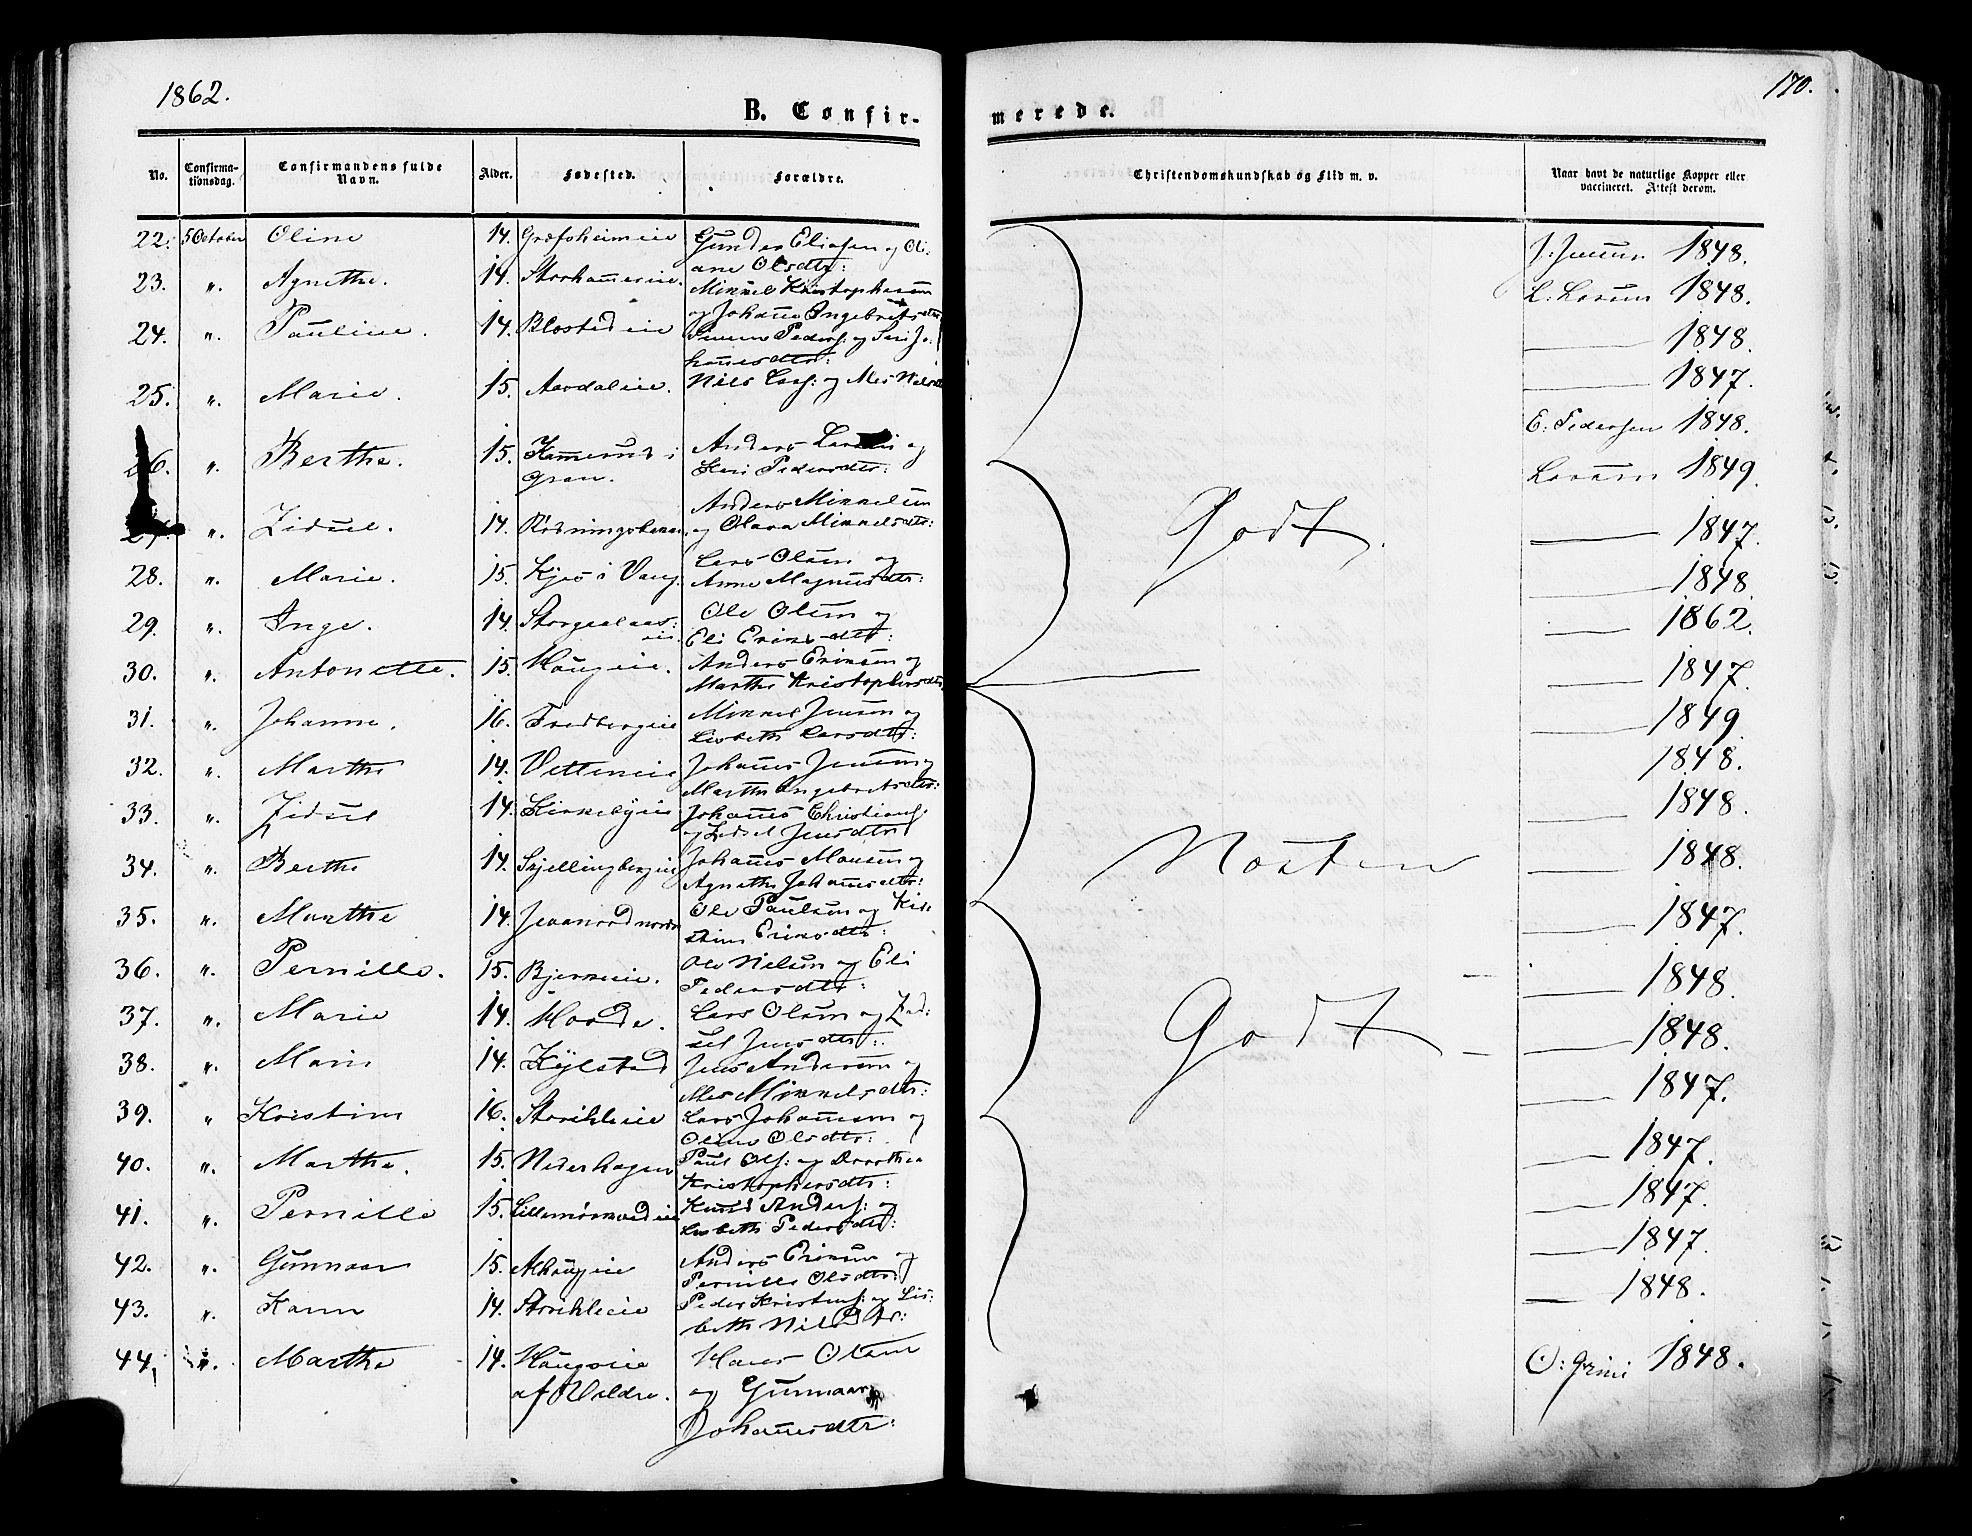 1862.
170.
B. Confirmerede.
No. Confirmationsdag. Confirmandens fulde Navn. Alder. Fødested. Forældre. Christendomskundskab og Flid m. v. Naar havt de naturlige Kopper eller vaccineret. Attest derom.
22. 5 October Oline 14. Gunder Eliasen og Oliane Olsdtr: 1848.
23. ". Agnethe. 14. Storhammereie. Mikkel Kristophersen og Johanne Ingebretsdtr 1848.
24. ". Pauline. 14. Blæstedeie Simen Peders: og Siri Johannesdtr: 1848.
25. ". Marie. 15. Aardaleie. Nils Lars: og Mes Nilsdtr 1847.
26. ". Berthe. 15. i Gran. Anders og Kari Pedersdtr: E: Pedersen 1848.
". Zidsel. 14. Anders Mikkelsen og Olava Mikkelsdtr: Larsen 1849
28. ". Marie. 15. Kjos i Vang. Lars Olsen og Anne Magnusdtr: 1847.
29. ". Inge. 14. Ole Olsen og Eli Eriksdtr: 1848.
30. ". Antonette. 15. Haugeie. Anders Eriksen og Marthe Kristophersdtr 1862.
31. ". Johanne. 16. Fredbergeie Mikkel Jensen og Lisbeth Larsdtr: 1847.
32. ". Marthe 14. Vetteneie Johannes Jensen og Marthe Ingebretsdtr: 1849.
33. ". Zidsel 14. Kirkebyeie Johannes Christians: og Zidsel Jensdtr 1848.
34. ". Berthe 14. Skjellingbergeie Johannes Monsen og Agnethe Johannesdtr: 1848.
35. ". Marthe 14. Ole Paulsen og Kirstine Eriksdtr: 1848.
36. ". Pernille. 15. Bjerkeie. Ole Nielsen og Eli Pedersdtr: 1847.
37. ". Marie 14. Lars Olsen og Zidsel Jensdtr: 1848.
38. ". Marie 14. Kylstad Jens Andersen og Mes Mikkelsdtr: 1848.
39. " Kristine 16. Storihleeie Lars Johannesen og Oline Olsdtr: 1847.
40. ". Marthe. 15. Nederhagen Paul Ols: og Dorothea Kristophersdtr: 1847.
41. ". Pernille 15. Knud Anders: og Lisbeth Pedersdtr: 1847.
42. ". Gunnaar 15. Alhaugeie Anders Eriksen og Pernille Olsdtr: 1847.
43. ". Karen 14. Storihleeie Peder Kristens: og Lisbeth Nilsdtr: 1848.
44. ". Marthe 14. Haugseie af Veldre. Hans Olsen og Gunnaar Johannesdtr: 1848.
Godt.
Næsten
Godt